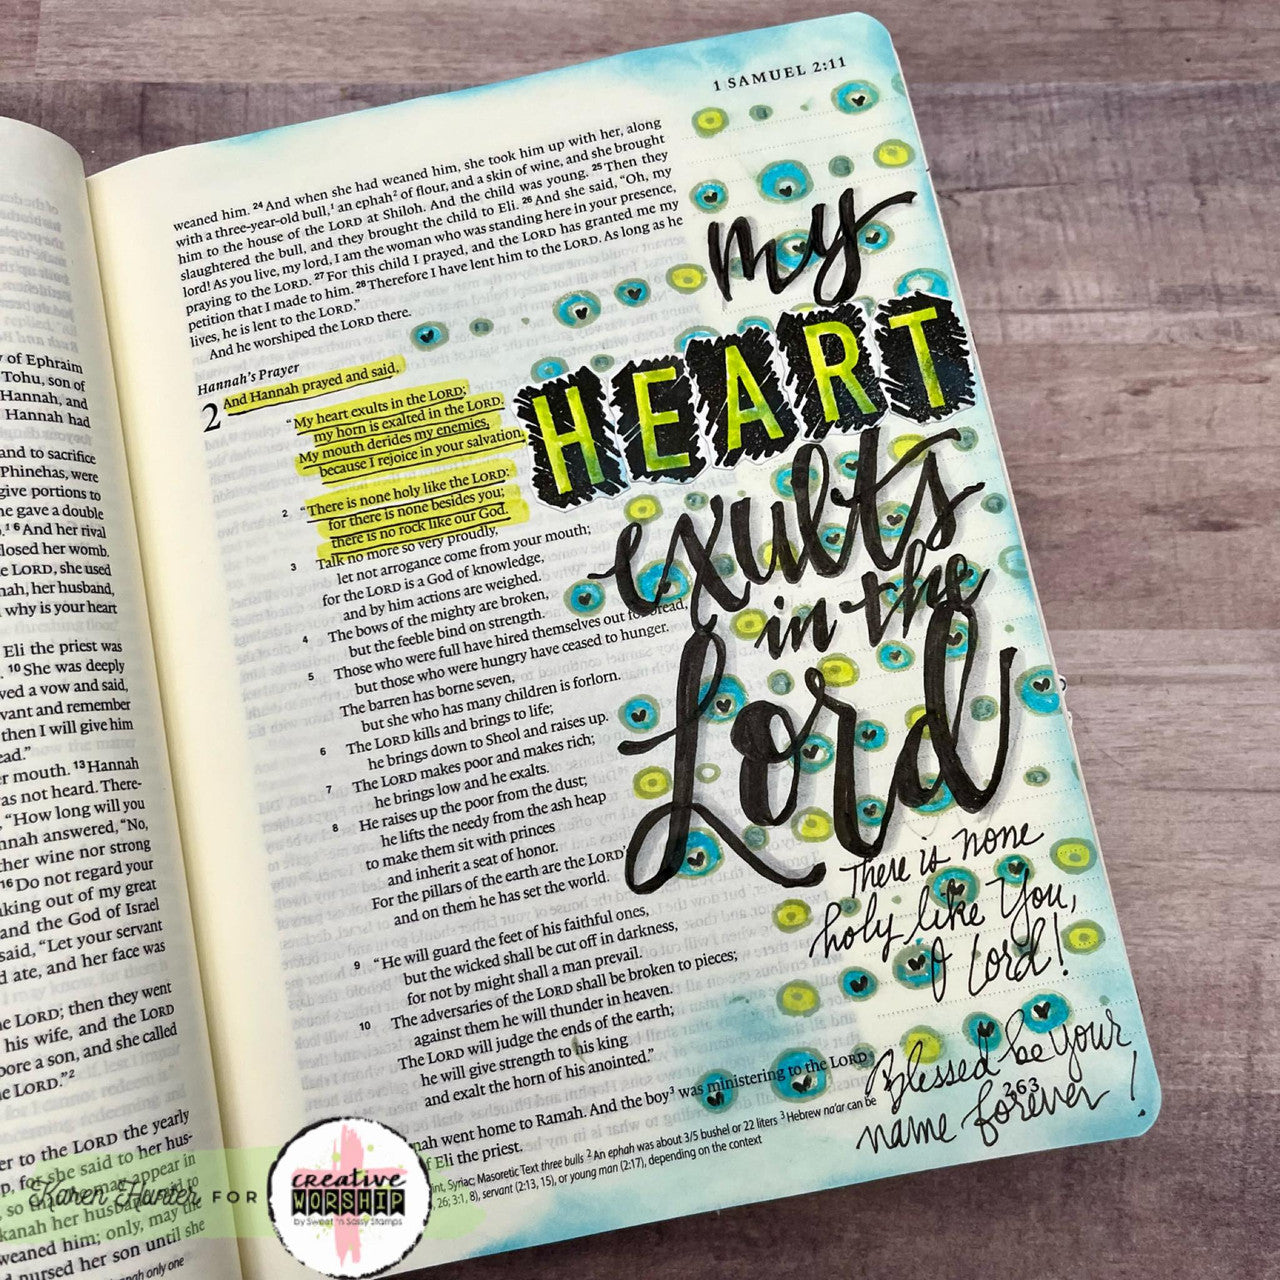 of Ephraim
Tohu, son of
Hannah, and
Hannah had
and to sacrifice
Phinehas, were
give portions to
he gave a double
6 And her rival
closed her womb.
e LORD, she used
nah, her husband,
why is your heart
Eli the priest was
10 She was deeply
ved a vow and said,
vant and remember
then I will give him
ead.”
er mouth. 13 Hannah
as not heard. There-
“How long will you
nnah answered, “No,
ther wine nor strong
16 Do not regard your
aking out of my great
and the God of Israel
said, “Let your servant
d ate, and her face was
he LORD; then they went
his wife, and the LORD
bore a son, and she called
he LORD.” 2
er to the LORD the yearly
p, for she said to her hus-
may appear in
kanah her husband said to
weaned him; only, may the
d nursed her son until she
1 SAMUEL 2:11
weaned him. 24 And when she had weaned him, she took him up with her, along
with a three-year-old bull, 1 an ephah 2 of flour, and a skin of wine, and she brought
him to the house of the LORD at Shiloh. And the child was young. 25 Then they
slaughtered the bull, and they brought the child to Eli. 26 And she said, “Oh, my
lord! As you live, my lord, I am the woman who was standing here in your presence,
praying to the LORD. 27 For this child I prayed, and the LORD has granted me my
petition that I made to him. 28 Therefore I have lent him to the LORD. As long as he
lives, he is lent to the LORD.”
And he worshiped the LORD there.
Hannah’s Prayer
2 And Hannah prayed and said,
“My heart exults in the LORD;
my horn is exalted in the LORD.
My mouth derides my enemies,
because I rejoice in your salvation.
2 “There is none holy like the LORD:
for there is none besides you;
there is no rock like our God.
3 Talk no more so very proudly,
let not arrogance come from your mouth;
for the LORD is a God of knowledge,
and by him actions are weighed.
4 The bows of the mighty are broken,
but the feeble bind on strength.
5 Those who were full have hired themselves out for bread,
but those who were hungry have ceased to hunger.
The barren has borne seven,
but she who has many children is forlorn.
6 The LORD kills and brings to life;
he brings down to Sheol and raises up.
7 The LORD makes poor and makes rich;
he brings low and he exalts.
8 He raises up the poor from the dust;
he lifts the needy from the ash heap
to make them sit with princes
and inherit a seat of honor.
For the pillars of the earth are the LORD’
and on them he has set the world.
9 “He will guard the feet of his faithful ones,
but the wicked shall be cut off in darkness,
for not by might shall a man prevail.
10 The adversaries of the LORD shall be broken to pieces;
against them he will thunder in heaven.
The LORD will judge the ends of the earth;
he will give strength to his king
and exalt the horn of his anointed.”
nah went home to Ramah. And the boy 3 was ministering to the LORD
f Eli the priest.
int, Syriac; Masoretic Text three bulls 2 An ephah was about 3/5 bushel or 22 liters 3 Hebrew na‘ar can be
26; 3:1, 8), servant (2:13, 15), or young man (2:17), depending on the context
my
HEART
exults
in the
Lord
There is none
holy like You,
O Lord!
Blessed be Your
name forever!
263
Karen Hunter FOR
creative
WORSHIP
by Sweet 'n Sassy Stamps